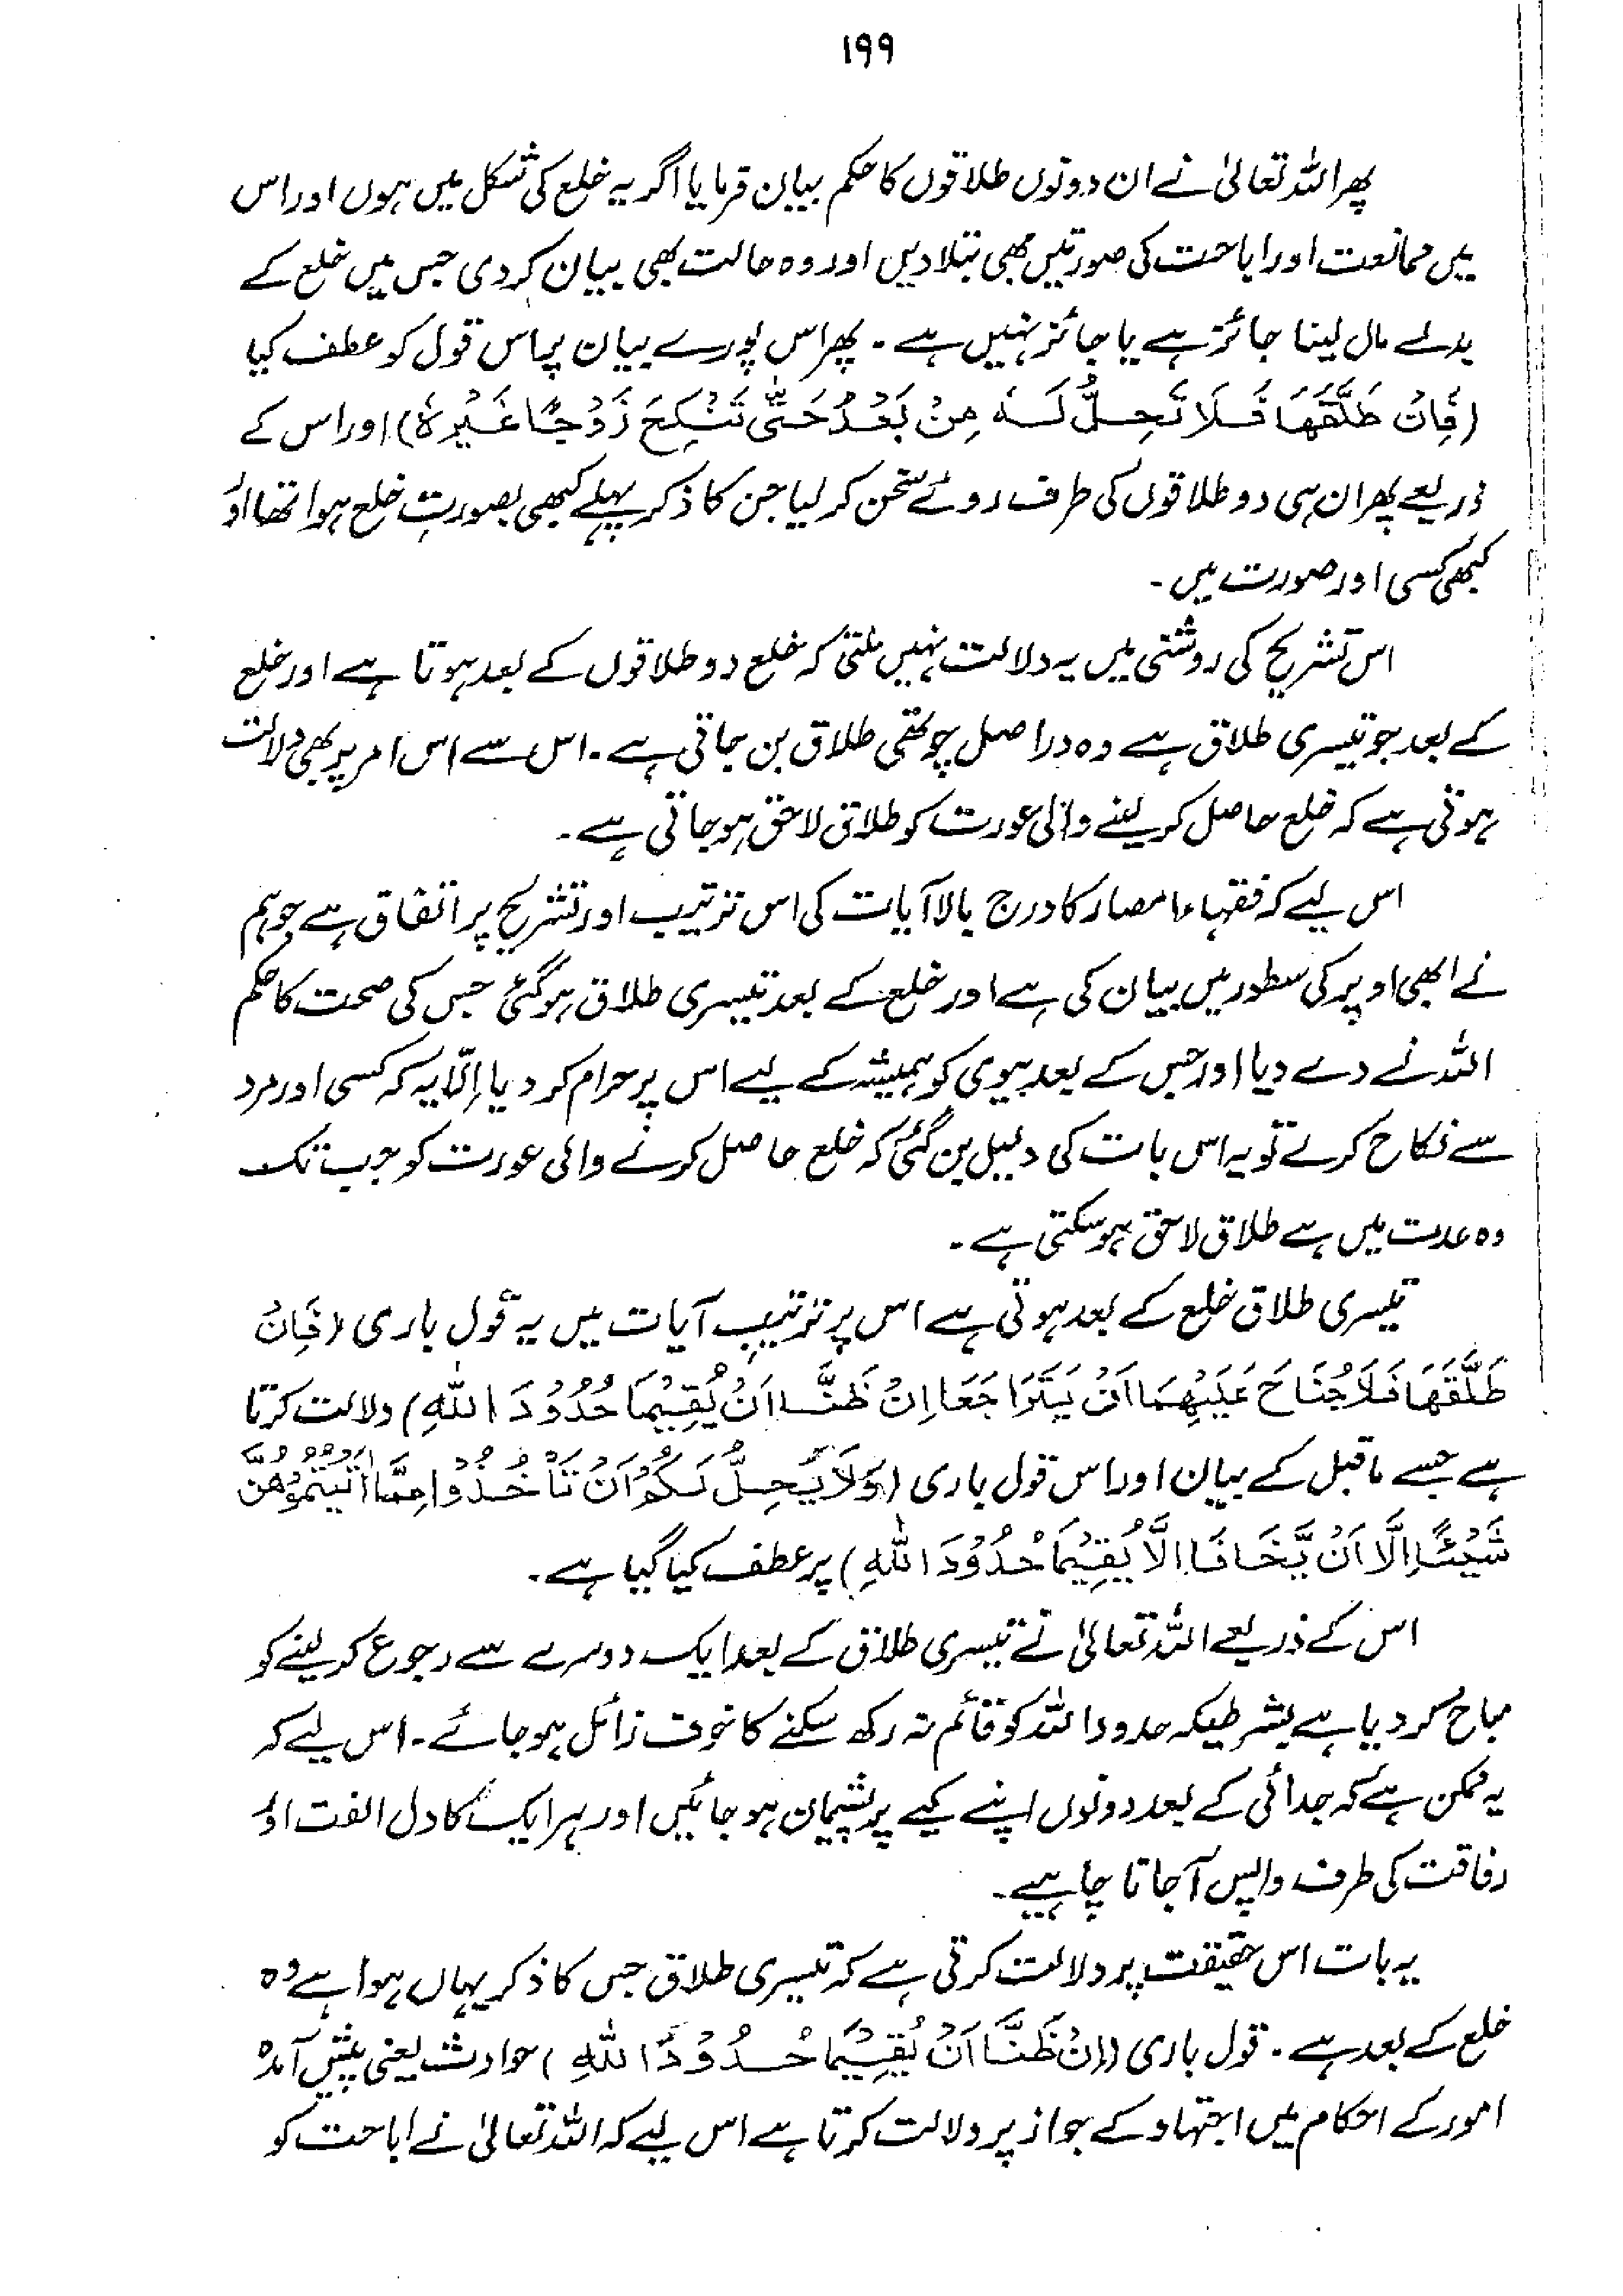 ۱۹۹
پھر اللہ تعالیٰ نے ان دونوں طلاقوں کا حکم بیان فرمایا اگر یہ خلع کی شکل میں ہوں اور اس
میں ممانعت اور اباحت کی صورتیں بھی بتلا دیں اور وہ حالت بھی بیان کر دی جس میں خلع کے
بدلے مال لینا جائز ہے یا جائز نہیں ہے۔ پھر اس پورے بیان پر اس قول کو عطف کیا
(فَاِنْ طَلَّقَهَا فَلَا تَحِلُّ لَهٗ مِنْ بَعْدُ حَتّٰی تَنْکِحَ زَوْجًا غَیْرَہٗ) اور اس کے
ذریعے پھر ان ہی دو طلاقوں کی طرف روئے سخن کر لیا جن کا ذکر پہلے کبھی بصورتِ خلع ہوا تھا اور
کبھی کسی اور صورت میں۔
اس تشریح کی روشنی میں یہ دلالت نہیں ملتی کہ خلع دو طلاقوں کے بعد ہوتا ہے اور خلع
کے بعد جو تیسری طلاق ہے وہ دراصل چوتھی طلاق بن جاتی ہے۔ اس سے اس امر پر بھی دلالت
ہوتی ہے کہ خلع حاصل کر لینے والی عورت کو طلاق لاحق ہو جاتی ہے۔
اس لیے کہ فقہاء امصار کا درج بالا آیات کی اس ترتیب اور تشریح پر اتفاق ہے جو ہم
نے ابھی اوپر کی سطور میں بیان کی ہے اور خلع کے بعد تیسری طلاق ہو گئی جس کی صحت کا حکم
اللہ نے دے دیا اور جس کے بعد بیوی کو ہمیشہ کے لیے اس پر حرام کر دیا اِلّا یہ کہ کسی اور مرد
سے نکاح کر لے تو یہ اس بات کی دلیل بن گئی کہ خلع حاصل کرنے والی عورت کو جب تک
وہ عدت میں ہے طلاق لاحق ہو سکتی ہے۔
تیسری طلاق خلع کے بعد ہوتی ہے اس پر ترتیبِ آیات میں یہ قول باری (فَاِنْ
طَلَّقَهَا فَلَا جُنَاحَ عَلَیْهِمَا اَنْ یَتَرَاجَعَا اِنْ ظَنَّا اَنْ یُقِیْمَا حُدُوْدَ اللّٰهِ) دلالت کرتا
ہے جسے ماقبل کے بیان اور اس قول باری (وَلَا یَحِلُّ لَکُمْ اَنْ تَاْخُذُوْا مِمَّا اٰتَیْتُمُوْهُنَّ
شَیْئًا اِلَّا اَنْ یَّخَافَا اِلَّا یُقِیْمَا حُدُوْدَ اللّٰهِ) پر عطف کیا گیا ہے۔
اس کے ذریعے اللہ تعالیٰ نے تیسری طلاق کے بعد ایک دوسرے سے رجوع کر لینے کو
مباح کر دیا ہے بشرطیکہ حدود اللہ کو قائم نہ رکھ سکنے کا خوف زائل ہو جائے۔ اس لیے کہ
یہ ممکن ہے کہ جدائی کے بعد دونوں اپنے کیے پر پشیمان ہو جائیں اور ہر ایک کا دل الفت اور
رفاقت کی طرف واپس آجانا چاہیے۔
یہ بات اس حقیقت پر دلالت کرتی ہے کہ تیسری طلاق جس کا ذکر یہاں ہوا ہے وہ
خلع کے بعد ہے۔ قول باری (اِنْ ظَنَّا اَنْ یُقِیْمَا حُدُوْدَ اللّٰهِ) حوادث یعنی پیش آمدہ
امور کے احکام میں اجتہاد کے جواز پر دلالت کرتا ہے اس لیے کہ اللہ تعالیٰ نے اباحت کو